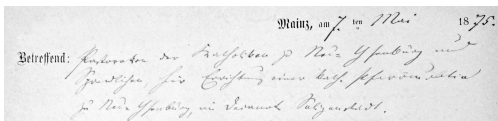 Mainz, am 7. ten Mai 1875.
Betreffend: Pastoration der Katholiken zu Neu-Isenburg und
Sprendlingen hier Errichtung einer kath.
zu Neu-Isenburg, im Decanat Seligenstadt.